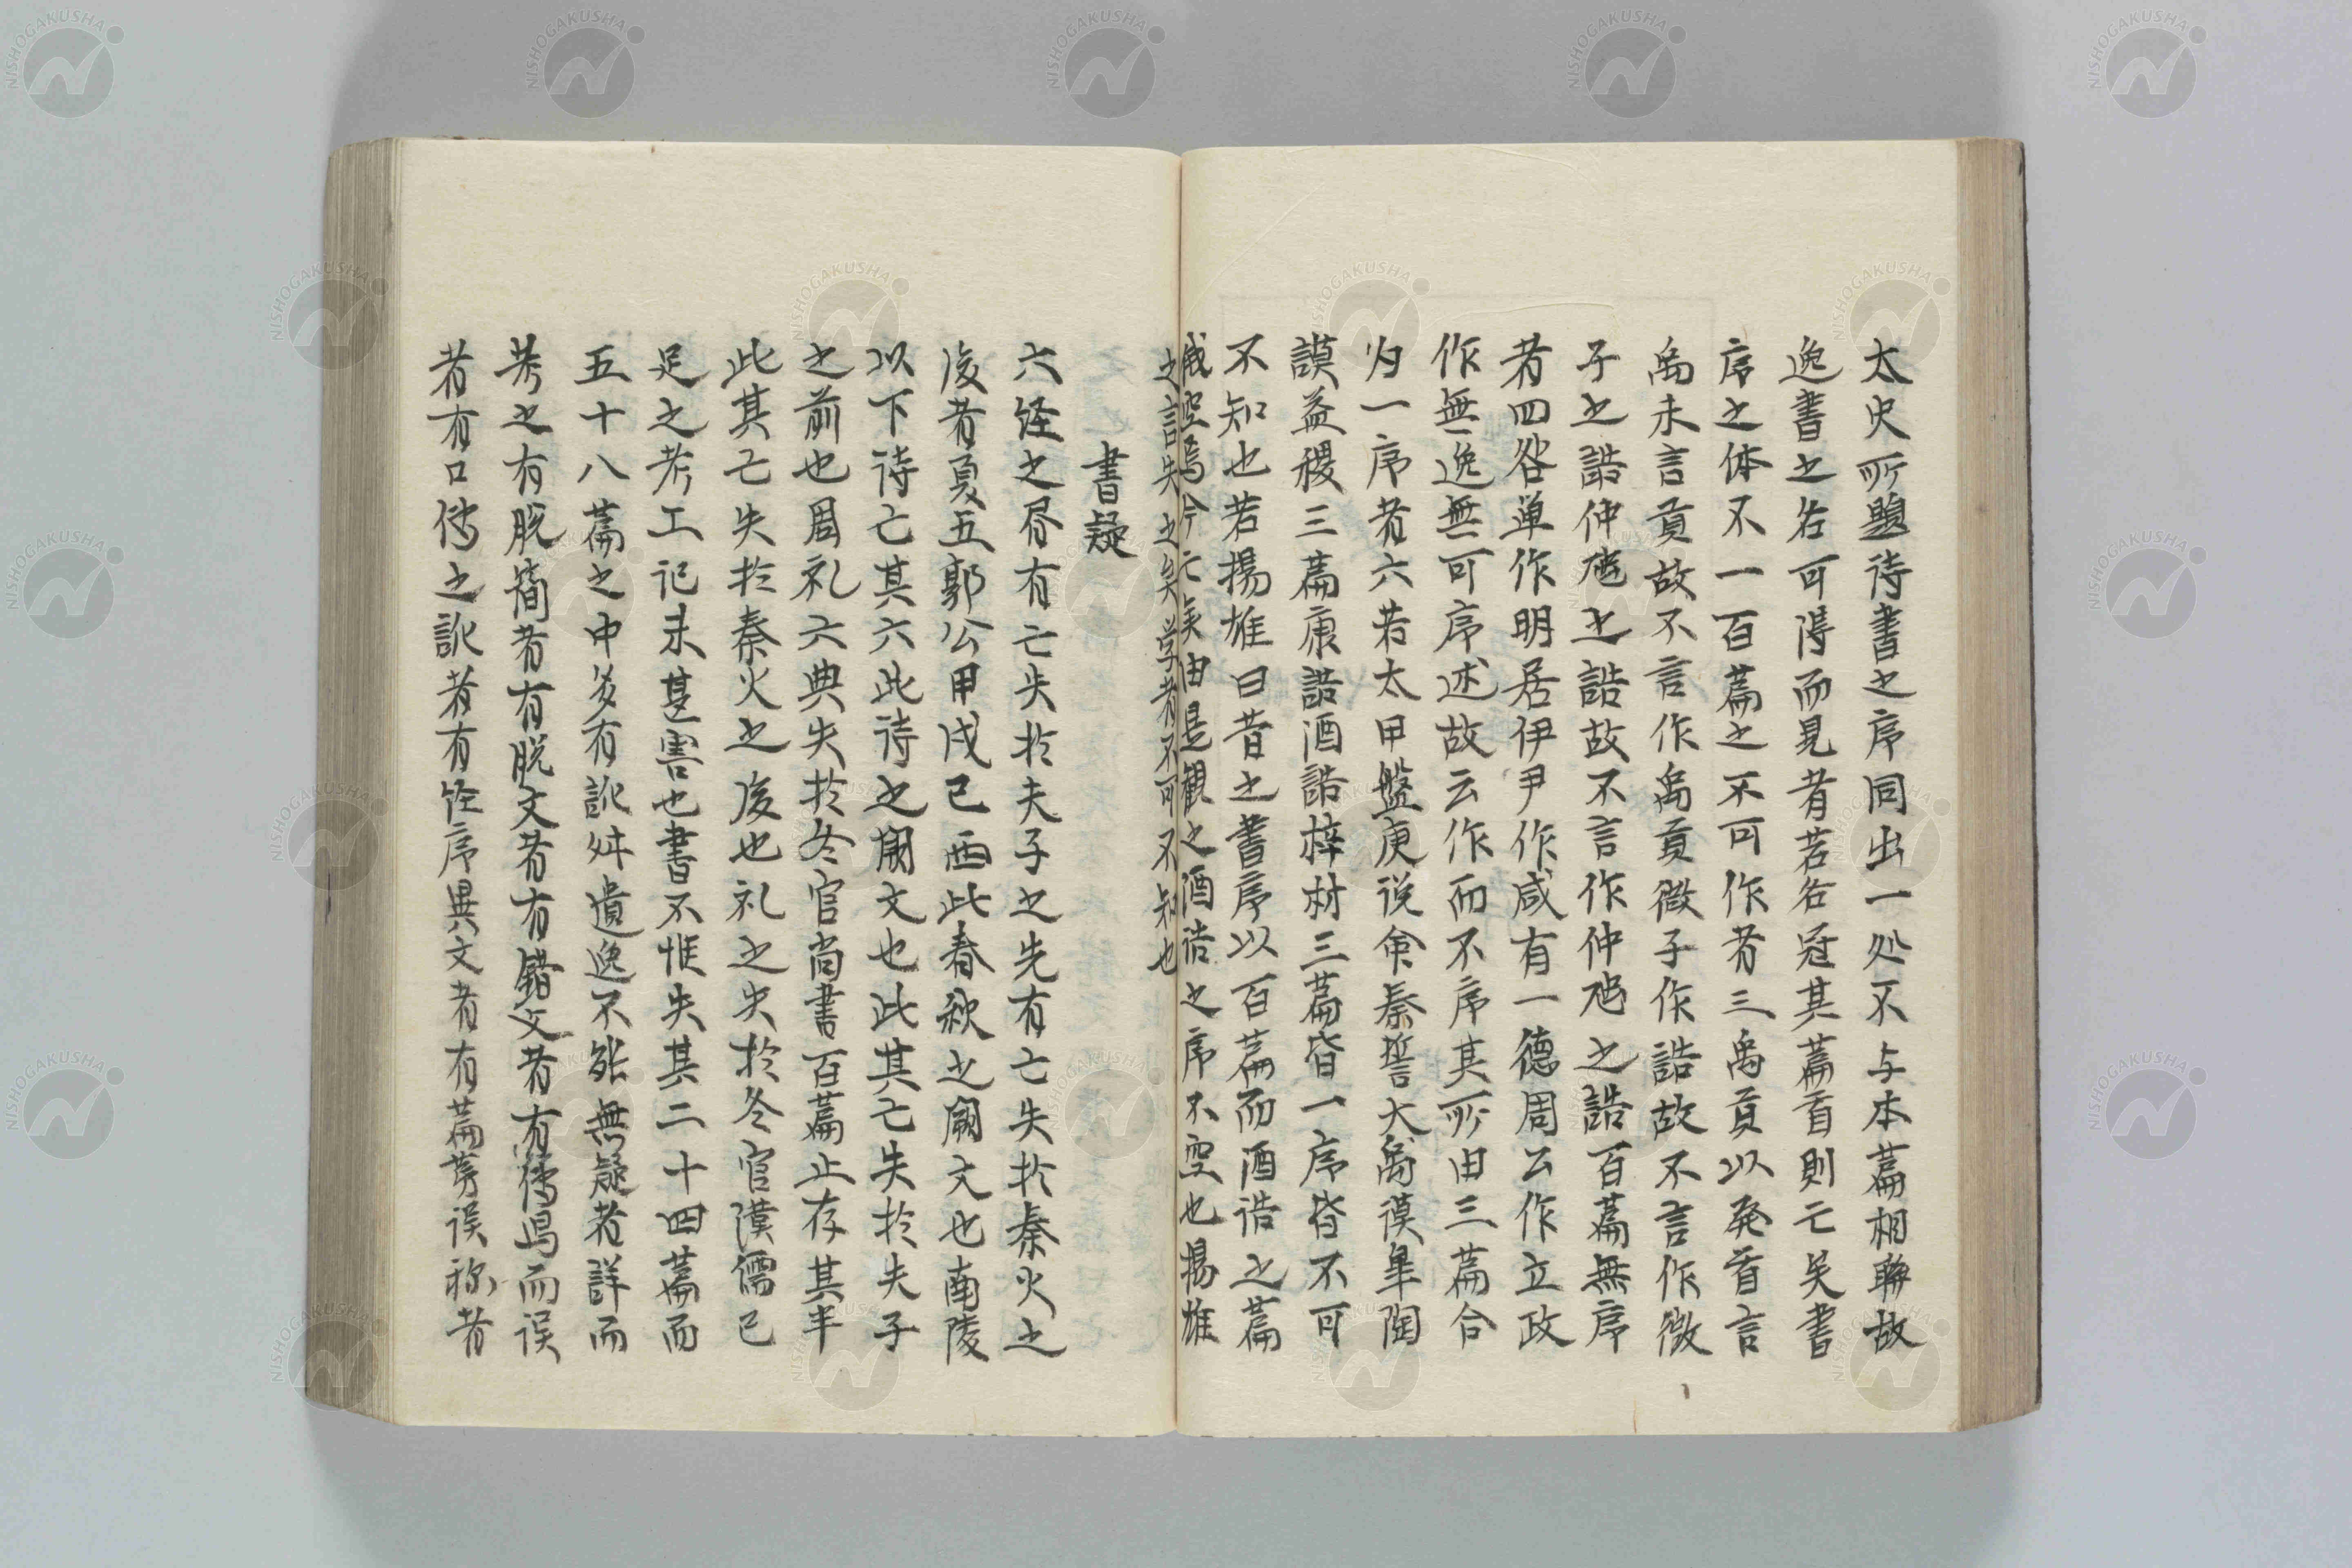 太史所題待書之序同出一処不与本篇相聯故
逸書之名可得而見者若各冠其篇首則亡矣書
序之体不一百篇之不可作者三禹貢以発首言
禹未言貢故不言作禹貢微子作誥故不言作微
子之誥仲虺之誥故不言作仲虺之誥百篇無序
者四咎単作明居伊尹作咸有一徳周公作立政
作無逸無可序述故云作而不序其所由三篇合
为一序者六若太甲盤庚説命泰誓大禹謨皐陶
謨益稷三篇康誥酒誥梓材三篇皆一序皆不可
不知也若揚雄曰昔之書序以百篇而酒誥之篇
俄空焉今亡矣由是観之酒誥之序不空也揚雄
之言失之矣学者不可不知也
書疑
六経之昏有亡失於夫子之先有亡失於秦火之
後者夏五郭公甲戌己酉此春秋之闕文也南陵
以下待亡其六此待之闕文也此其亡失於夫子
之前也周礼六典失於冬官尚書百篇止存其半
此其亡失於秦火之之後也礼之失於冬官漢儒已
足之考工記未甚害也書不惟失其二十四篇而
五十八篇之中多有訛舛遺逸不能無疑者詳而
考之有脱簡者有脱文者有錯文者有傳写而误
者有口傳之訛者有経序異文者有篇第误称者